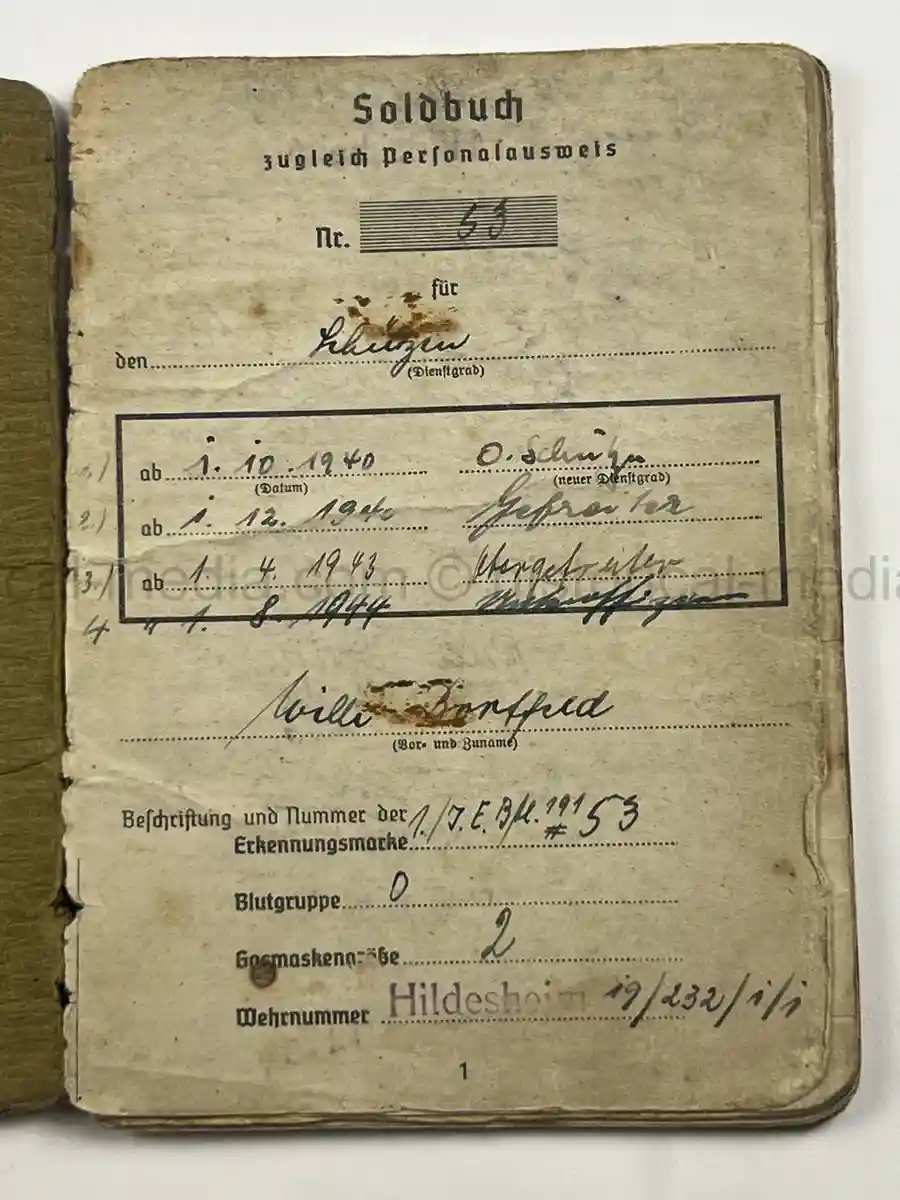 Soldbuch
zugleich Personalausweis
Nr. 53
für
den Schützen
(Dienstgrad)
1.) ab 1. 10. 1940 O. Schütze
(Datum) (neuer Dienstgrad)
2.) ab 1. 12. 1940 Gefreiter
3.) ab 1. 4. 1943 Obergefreiter
4 " 1. 8. 1944 Unteroffizier
Willi Bortfeld
(Vor- und Zuname)
Beschriftung und Nummer der 1./J.E.Btl. 191 # 53
Erkennungsmarke
Blutgruppe O
Gasmaskengröße 2
Wehrnummer Hildesheim 19/232/1/1
1